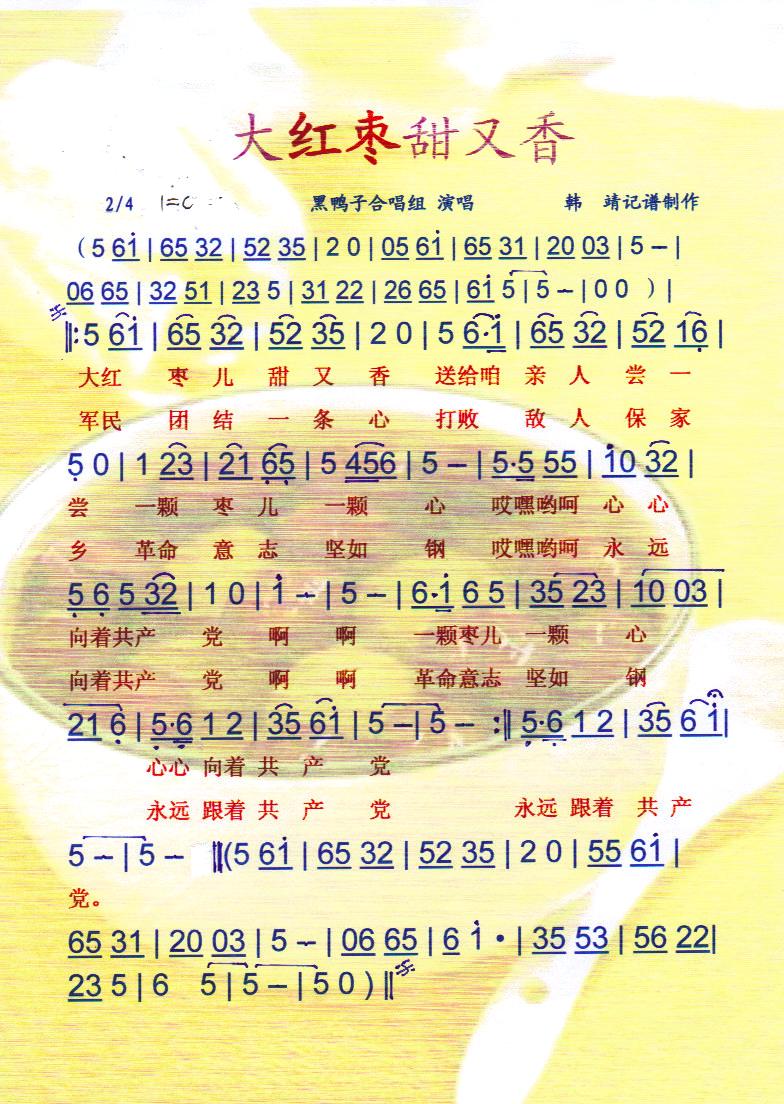 大红枣甜又香
2/4 1=C 黑鸭子合唱组 演唱 韩 靖记谱制作
(5 6i | 65 32 | 52 35 | 2 0 | 05 6i | 65 31 | 20 03 | 5 – |
06 65 | 32 51 | 23 5 | 31 22 | 26 65 | 6i 5 | 5 – | 0 0 ) |
‖: 5 6i | 65 32 | 52 35 | 2 0 | 5 6·i | 65 32 | 52 16 |
大红 枣 儿 甜 又 香 送给咱 亲 人 尝 一
军民 团 结 一 条 心 打败 敌 人 保 家
5 0 | 1 23 | 21 65 | 5 456 | 5 – | 5·5 55 | i0 32 |
尝 一颗 枣 儿 一颗 心 哎嘿哟呵 心 心
乡 革命 意 志 坚如 钢 哎嘿哟呵 永 远
5 6 5 32 | 1 0 | i – | 5 – | 6·i 6 5 | 35 23 | 10 03 |
向着共产 党 啊 啊 一颗枣儿 一颗 心
向着共产 党 啊 啊 革命意志 坚如 钢
21 6 | 5·6 1 2 | 35 6i | 5 – | 5 – :‖ 5·6 1 2 | 35 6 i |
心心 向着 共 产 党
永远 跟着 共 产 党 永远 跟着 共 产
5 – | 5 – ‖ (5 6i | 65 32 | 52 35 | 2 0 | 55 6i |
党。
65 31 | 20 03 | 5 – | 06 65 | 6 i · | 35 53 | 56 22 |
23 5 | 6 5 | 5 – | 5 0 ) ‖